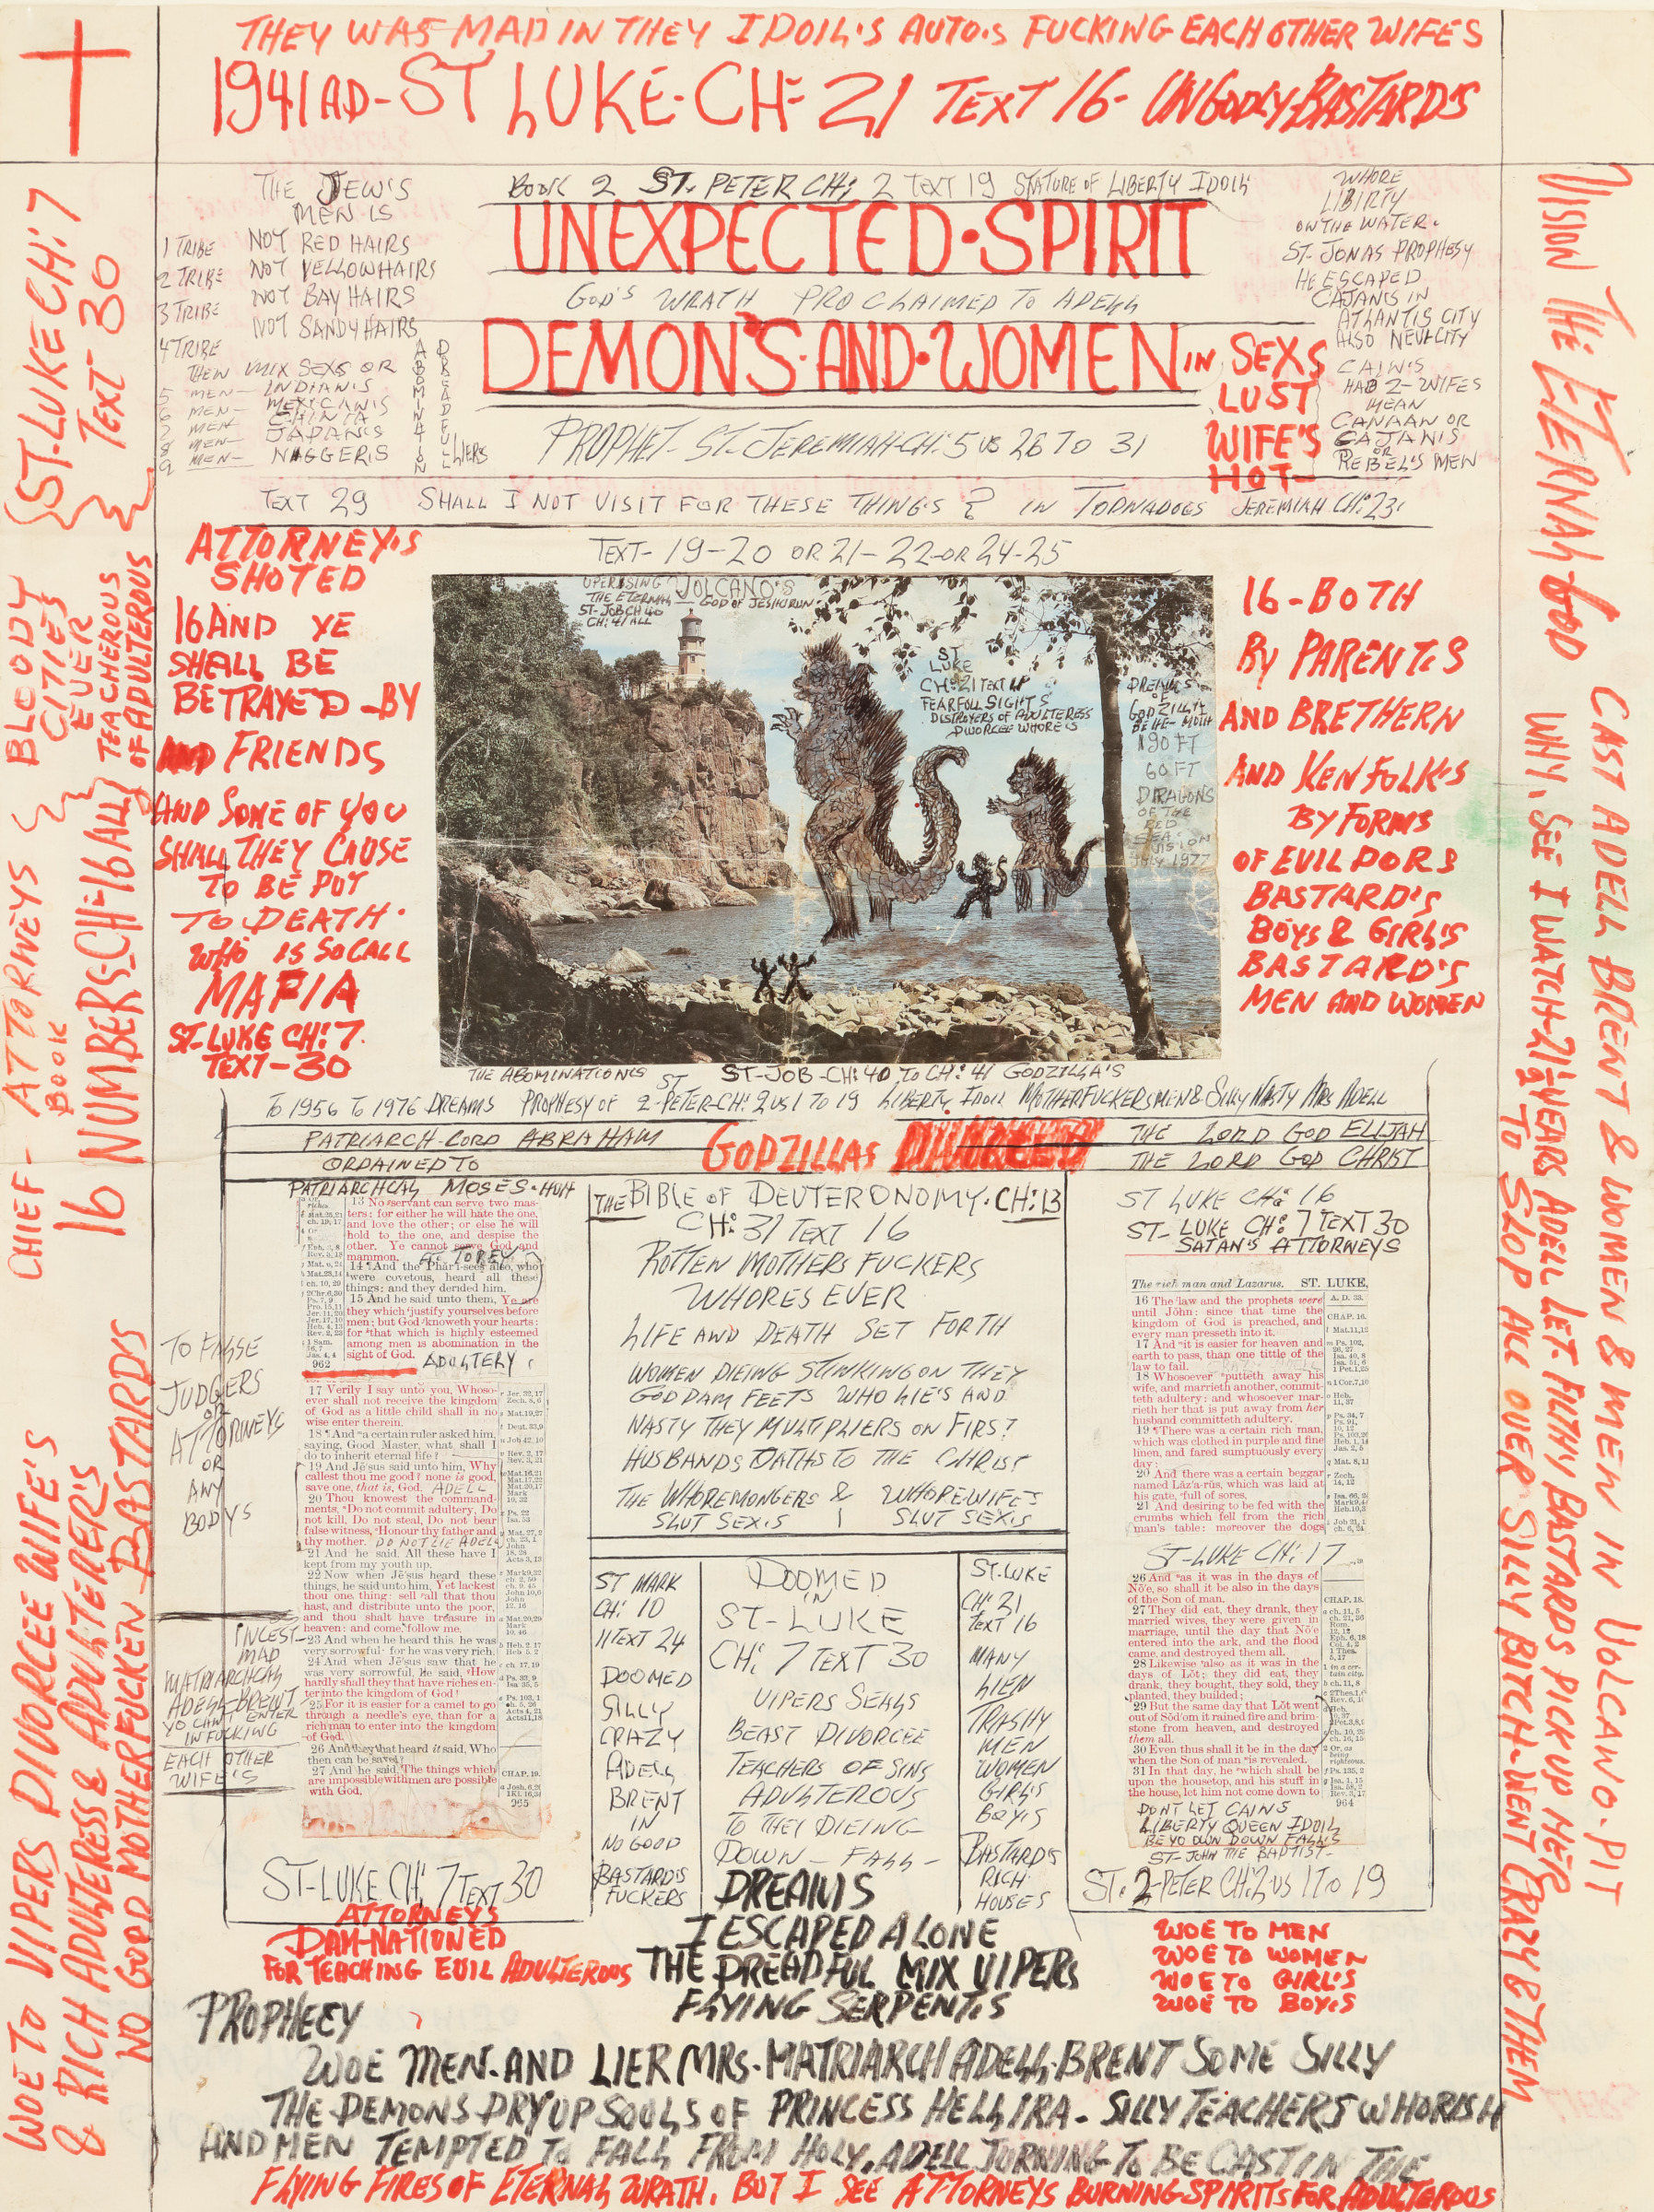 THEY WAS MAD IN THEY IDOIL'S AUTO.S FUCKING EACH OTHER WIFE'S
1941 AD - ST LUKE - CH= 21 TEXT 16 - UNGODLY-BASTARD'S
THE JEW'S
MEN IS
1 TRIBE NOT RED HAIRS
2 TRIBE NOT YELLOW HAIRS
3 TRIBE NOT BAY HAIRS
NOT SANDY HAIRS
4 TRIBE
THEN MIX SEXS OR
5 MEN - INDIANIS
6 MEN - MEXICANIS
7 MEN - CHINIA
8 MEN - JAPANIS
9 MEN - NAGGERIS
ABOMINATION
DREADFULL
LIERS
BOOK 2 ST. PETER CH: 2 TEXT 19 STATURE OF LIBERTY IDOIL
UNEXPECTED·SPIRIT
GOD'S WRATH PROCLAIMED TO ADELL
DEMON'S·AND·WOMEN IN SEXS
LUST
WIFE'S
HOT-
PROPHET-ST-JEREMIAH-CH: 5 vs 26 TO 31
WHORE
LIBIRTY
ON THE WATER.
ST-JONAS PROPHESY
HE ESCAPED
CAJANIS IN
ATLANTIS CITY
ALSO NEVE-CITY
CAIN'S
HAD 2-WIFES
MEAN
CANAAN OR
CAJANIS
OR
REBEL'S MEN
TEXT 29 SHALL I NOT VISIT FOR THESE THING'S ? IN TORNADOES JEREMIAH CH: 23:
TEXT- 19-20 OR 21-22-OR 24-25
ATTORNEY.S
SHOTED
16 AND YE
SHALL BE
BETRAYED -BY
AND FRIENDS
AND SOME OF YOU
SHALL THEY CAUSE
TO BE PUT
TO DEATH.
WHO IS SO CALL
MAFIA
ST-LUKE CH: 7.
TEXT-30
UPERISING VOLCANO'S
THE ETERNAL GOD OF JESHURUN
ST-JOB CH 40
CH: 41 ALL
ST
LUKE
CH: 21 TEXT 11
FEARFULL SIGHT'S
DISTROYERS OF ADULTERESS
DIVORCEE WHORE'S
DREAMS
OF
GODZILLA
BEHE-MOTH
190 FT
60 FT
DRAGONS
OF THE
RED
SEA
VISION
JULY 1977
16-BOTH
By PARENT.S
AND BRETHERN
AND KENFOLK'S
BY FORMS
OF EVIL DOR.S
BASTARD'S
BOYS & GIRL'S
BASTARD'S
MEN AND WOMEN
THE ABOMINATION.S ST ST-JOB-CH: 40 TO CH: 41 GODZILLA'S
TO 1956 TO 1976 DREAMS PROPHESY OF 2-PETER-CH: 2 vs 1 TO 19 LIBERTY IDOIL MOTHERFUCKERS MEN & SILLY NASTY MRS ADELL
PATRIARCH-LORD ABRAHAM
ORDAINED TO
PATRIARCHAL MOSES-HUH
GODZILLAS DIVORCED
THE LORD GOD ELIJAH
THE LORD GOD CHRIST
13 No servant can serve two mas-
ters: for either he will hate the one,
and love the other; or else he will
hold to the one, and despise the
other. Ye cannot serve God and
mammon.
14 And the Phar'i-sees also, who
were covetous, heard all these
things: and they derided him.
15 And he said unto them, Ye are
they which justify yourselves before
men; but God knoweth your hearts:
for that which is highly esteemed
among men is abomination in the
sight of God. ADULTERY
962
17 Verily I say unto you, Whoso-
ever shall not receive the kingdom
of God as a little child shall in no
wise enter therein.
18 And a certain ruler asked him,
saying, Good Master, what shall I
do to inherit eternal life?
19 And Je'sus said unto him, Why
callest thou me good? none is good,
save one, that is, God. ADELL
20 Thou knowest the command-
ments, Do not commit adultery, Do
not kill, Do not steal, Do not bear
false witness, Honour thy father and
thy mother. DO NOT LIE ADELL
21 And he said, All these have I
kept from my youth up.
22 Now when Je'sus heard these
things, he said unto him, Yet lackest
thou one thing: sell all that thou
hast, and distribute unto the poor,
and thou shalt have treasure in
heaven: and come, follow me.
23 And when he heard this, he was
very sorrowful: for he was very rich.
24 And when Je'sus saw that he
was very sorrowful, he said, How
hardly shall they that have riches en-
ter into the kingdom of God!
25 For it is easier for a camel to go
through a needle's eye, than for a
rich man to enter into the kingdom
of God.
26 And they that heard it said, Who
then can be saved?
27 And he said, The things which
are impossible with men are possible
with God.
CHAP. 19.
965
ST-LUKE CH: 7 TEXT 30
TO FALSE
JUDGERS
OR
ATTORNEYS
OR
ANY
BODYS
INCEST-
MAD
MATRIARCHAL
ADELL-BRENT
YO CAN'T ENTER
IN FUCKING
EACH OTHER
WIFE'S
THE BIBLE OF DEUTERONOMY. CH: 13
CH: 31 TEXT 16
ROTTEN MOTHERS FUCKERS
WHORES EVER
LIFE AND DEATH SET FORTH
WOMEN DIEING STINKING ON THEY
GOD DAM FEETS WHO LIE'S AND
NASTY THEY MULTIPLIERS ON FIRST
HUSBANDS OATHS TO THE CHRIST
THE WHOREMONGERS & WHORE-WIFE'S
SLUT SEX.S SLUT SEX.S
ST MARK
CH: 10
11 TEXT 24
DOOMED
SILLY
CRAZY
ADELL
BRENT
IN
NO GOOD
BASTARDS
FUCKERS
DOOMED
IN
ST-LUKE
CH: 7 TEXT 30
VIPERS SEALS
BEAST DIVORCEE
TEACHERS OF SINS
ADULTEROUS
TO THEY DIEING-
DOWN-FALL-
ST.LUKE
CH: 21
TEXT 16
MANY
LIEN
TRASHY
MEN
WOMEN
GIRL'S
BOY.S
BASTARD'S
RICH
HOUSES
ST LUKE CH: 16
ST-LUKE CH: 7 TEXT 30
SATAN'S ATTORNEYS
The rich man and Lazarus. ST. LUKE,
16 The law and the prophets were
until John: since that time the
kingdom of God is preached, and
every man presseth into it.
17 And it is easier for heaven and
earth to pass, than one tittle of the
law to fail.
18 Whosoever putteth away his
wife, and marrieth another, commit-
teth adultery: and whosoever mar-
rieth her that is put away from her
husband committeth adultery.
19 There was a certain rich man,
which was clothed in purple and fine
linen, and fared sumptuously every
day:
20 And there was a certain beggar
named Laz'a-rus, which was laid at
his gate, full of sores,
21 And desiring to be fed with the
crumbs which fell from the rich
man's table: moreover the dogs
A. D. 33.
CHAP. 16.
ST-LUKE CH: 17
26 And as it was in the days of
No'e, so shall it be also in the days
of the Son of man.
27 They did eat, they drank, they
married wives, they were given in
marriage, until the day that No'e
entered into the ark, and the flood
came, and destroyed them all.
28 Likewise also as it was in the
days of Lot; they did eat, they
drank, they bought, they sold, they
planted, they builded;
29 But the same day that Lot went
out of Sod'om it rained fire and brim-
stone from heaven, and destroyed
them all.
30 Even thus shall it be in the day
when the Son of man is revealed.
31 In that day, he which shall be
upon the housetop, and his stuff in
the house, let him not come down to
CHAP. 18.
964
DON'T LET CAINS
LIBERTY QUEEN IDOIL
BE YO OWN DOWN FALLS
ST-JOHN THE BAPTIST-
ST. 2-PETER CH: 2 vs 1 TO 19
ATTORNEYS
DAM-NATIONED
FOR TEACHING EVIL ADULTEROUS
DREAMS
I ESCAPED ALONE
THE DREADFUL MIX VIPERS
FLYING SERPENT.S
WOE TO MEN
WOE TO WOMEN
WOE TO GIRL'S
WOE TO BOY.S
PROPHECY
WOE MEN-AND LIER MRS-MATRIARCH ADELL-BRENT SOME SILLY
THE DEMONS DRY UP SOULS OF PRINCESS HELL IRA - SILLY TEACHERS WHORISH
AND MEN TEMPTED TO FALL FROM HOLY. ADELL TURNING TO BE CAST IN THE
FLYING FIRES OF ETERNAL WRATH. BUT I SEE ATTORNEYS BURNING SPIRITS FOR ADULTEROUS
ST-LUKE CH: 7
TEXT 30
BLOODY
CITIES
EVER
TEACHEROUS
OF ADULTEROUS
CHIEF - ATTORNEYS
BOOK
16 NUMBERS-CH-16 ALL
WOE TO VIPERS DIVORCEE WIFE'S
& RICH ADULTERESS & ADULTERER'S
NO GOD MOTHERFUCKEN BASTARDS
VISION THE ETERNAL GOD CAST ADELL BRENT & WOMEN & MEN IN VOLCANO-PIT
WHY. SEE I WATCH-21½-YEARS ADELL LET FILTHY BASTARDS PICK UP HER
TO SLOP ALL OVER SILLY BITCH-WENT CRAZY & THEM